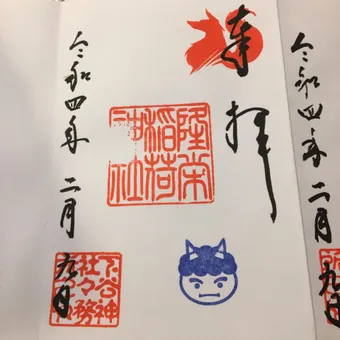 奉拝
隆栄
稲荷
神社
令和四年二月九日
下谷神
社々務
令和四年二月九日